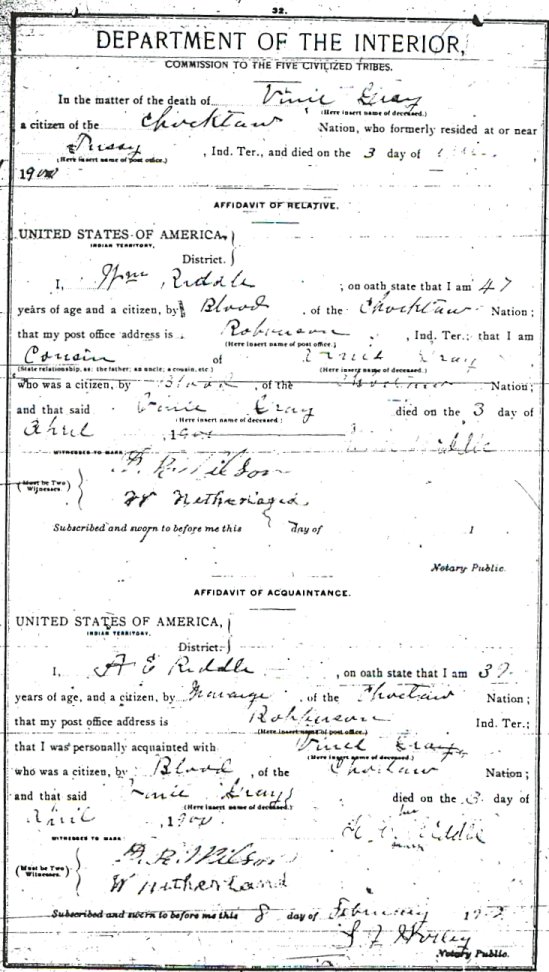 32.
DEPARTMENT OF THE INTERIOR,
COMMISSION TO THE FIVE CIVILIZED TRIBES.
In the matter of the death of Vinie Gray
(Here insert name of deceased.)
a citizen of the Chocktaw Nation, who formerly resided at or near
Tussy, Ind. Ter., and died on the 3 day of
(Here insert name of post office.)
AFFIDAVIT OF RELATIVE.
UNITED STATES OF AMERICA,
INDIAN TERRITORY,
District.
I, Wm Riddle, on oath state that I am 47
years of age and a citizen, by Blood, of the Chocktaw Nation;
that my post office address is Robberson, Ind. Ter.; that I am
(Here insert name of post office.)
Cousin of Gray
(State relationship, as: the father; an uncle; a cousin, etc.) (Here insert name of deceased.)
who was a citizen, by Blood, of the Nation;
and that said Vinie Gray died on the 3 day of
(Here insert name of deceased.)
April Riddle
WITNESSES TO MARK:
(Must be Two Witnesses.)
F. R. Wilson
W Netherland
Subscribed and sworn to before me this day of 1
Notary Public.
AFFIDAVIT OF ACQUAINTANCE.
UNITED STATES OF AMERICA,
INDIAN TERRITORY,
District.
I, Riddle, on oath state that I am 37
years of age, and a citizen, by Marraige, of the Choctaw Nation;
that my post office address is Robberson Ind. Ter.;
(Here insert name of post office.)
that I was personally acquainted with Gray,
(Here insert name of deceased.)
who was a citizen, by Blood, of the Choctaw Nation;
and that said Vinie Gray died on the 3 day of
(Here insert name of deceased.)
April
her
Riddle
mark
WITNESSES TO MARK:
(Must be Two Witnesses.)
F. R. Wilson
W Netherland
Subscribed and sworn to before me this 8 day of February
Notary Public.